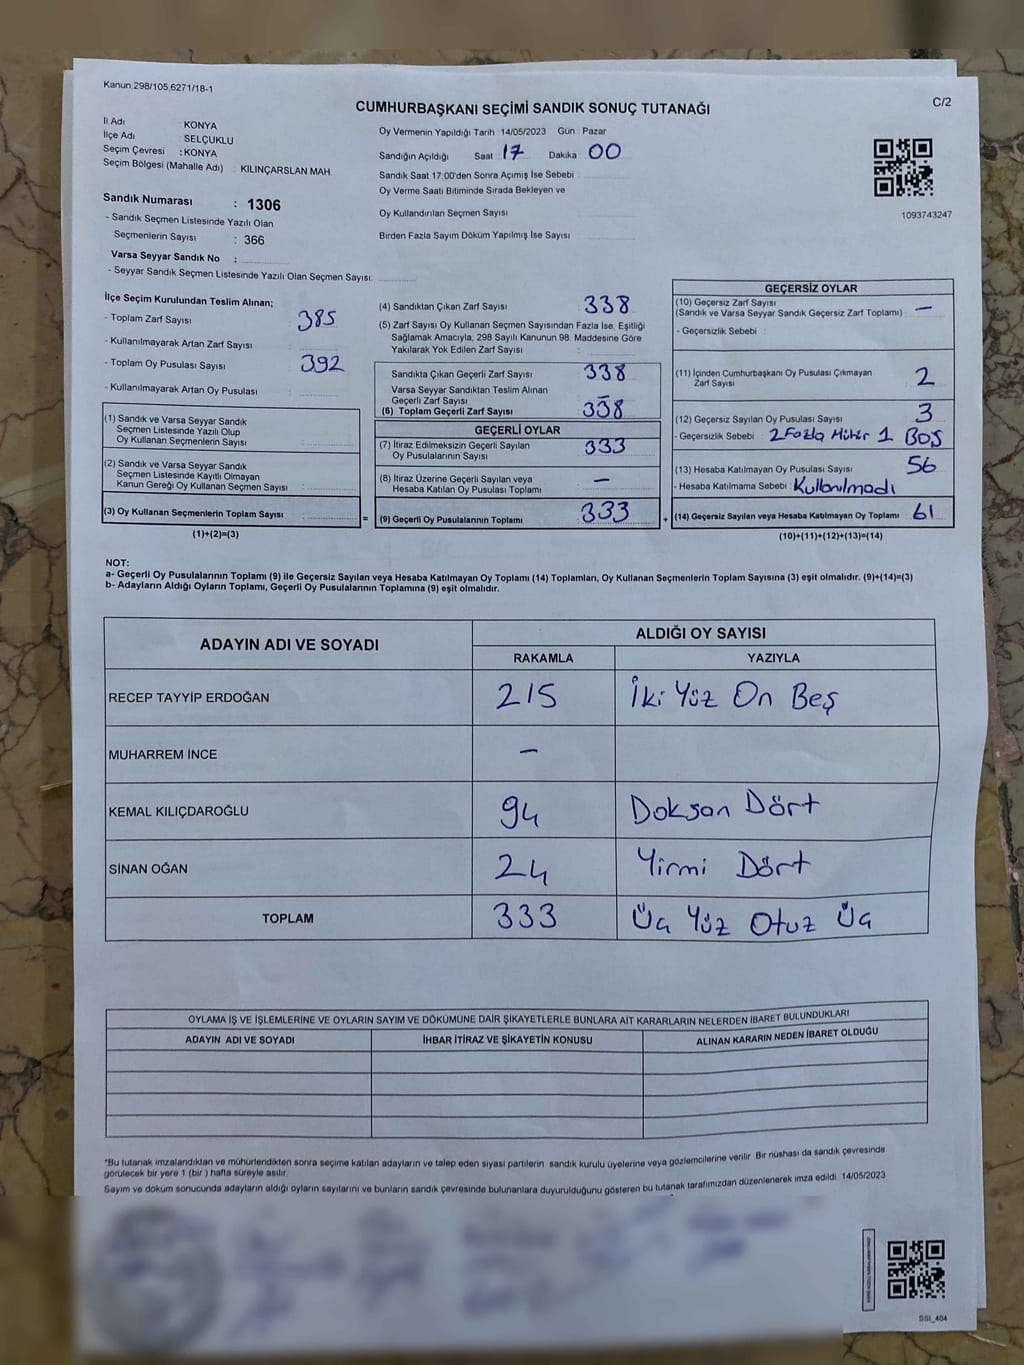 Kanun.298/105,6271/18-1
CUMHURBAŞKANI SEÇİMİ SANDIK SONUÇ TUTANAĞI
C/2
İl Adı : KONYA
İlçe Adı : SELÇUKLU
Seçim Çevresi : KONYA
Seçim Bölgesi (Mahalle Adı) : KILINÇARSLAN MAH.
Sandık Numarası : 1306
- Sandık Seçmen Listesinde Yazılı Olan
Seçmenlerin Sayısı : 366
Varsa Seyyar Sandık No :
- Seyyar Sandık Seçmen Listesinde Yazılı Olan Seçmen Sayısı:
Oy Vermenin Yapıldığı Tarih 14/05/2023 Gün Pazar
Sandığın Açıldığı Saat 17 Dakika 00
Sandık Saat 17:00'den Sonra Açımış İse Sebebi
Oy Verme Saati Bitiminde Sırada Bekleyen ve
Oy Kullandırılan Seçmen Sayısı
Birden Fazla Sayım Döküm Yapılmış İse Sayısı
1093743247
İlçe Seçim Kurulundan Teslim Alınan;
- Toplam Zarf Sayısı : 385
- Kullanılmayarak Artan Zarf Sayısı :
- Toplam Oy Pusulası Sayısı : 392
- Kullanılmayarak Artan Oy Pusulası :
(1) Sandık ve Varsa Seyyar Sandık
Seçmen Listesinde Yazılı Olup
Oy Kullanan Seçmenlerin Sayısı :
(2) Sandık ve Varsa Seyyar Sandık
Seçmen Listesinde Kayıtlı Olmayan
Kanun Gereği Oy Kullanan Seçmen Sayısı :
(3) Oy Kullanan Seçmenlerin Toplam Sayısı : =
(1)+(2)=(3)
(4) Sandıktan Çıkan Zarf Sayısı : 338
(5) Zarf Sayısı Oy Kullanan Seçmen Sayısından Fazla İse, Eşitliği
Sağlamak Amacıyla; 298 Sayılı Kanunun 98. Maddesine Göre
Yakılarak Yok Edilen Zarf Sayısı :
Sandıkta Çıkan Geçerli Zarf Sayısı : 338
Varsa Seyyar Sandıktan Teslim Alınan
Geçerli Zarf Sayısı : -
(6) Toplam Geçerli Zarf Sayısı : 338
GEÇERLİ OYLAR
(7) İtiraz Edilmeksizin Geçerli Sayılan
Oy Pusulalarının Sayısı : 333
(8) İtiraz Üzerine Geçerli Sayılan veya
Hesaba Katılan Oy Pusulası Toplamı : -
(9) Geçerli Oy Pusulalarının Toplamı : 333 +
GEÇERSİZ OYLAR
(10) Geçersiz Zarf Sayısı
(Sandık ve Varsa Seyyar Sandık Geçersiz Zarf Toplamı) : -
- Geçersizlik Sebebi :
(11) İçinden Cumhurbaşkanı Oy Pusulası Çıkmayan
Zarf Sayısı : 2
(12) Geçersiz Sayılan Oy Pusulası Sayısı : 3
- Geçersizlik Sebebi : 2 Fazla Mühür 1 BOŞ
(13) Hesaba Katılmayan Oy Pusulası Sayısı : 56
- Hesaba Katılmama Sebebi : Kullanılmadı
(14) Geçersiz Sayılan veya Hesaba Katılmayan Oy Toplamı : 61
(10)+(11)+(12)+(13)=(14)
NOT:
a- Geçerli Oy Pusulalarının Toplamı (9) ile Geçersiz Sayılan veya Hesaba Katılmayan Oy Toplamı (14) Toplamları, Oy Kullanan Seçmenlerin Toplam Sayısına (3) eşit olmalıdır. (9)+(14)=(3)
b- Adayların Aldığı Oyların Toplamı, Geçerli Oy Pusulalarının Toplamına (9) eşit olmalıdır.
ADAYIN ADI VE SOYADI ALDIĞI OY SAYISI
RAKAMLA YAZIYLA
RECEP TAYYİP ERDOĞAN 215 İki Yüz On Beş
MUHARREM İNCE -
KEMAL KILIÇDAROĞLU 94 Doksan Dört
SİNAN OĞAN 24 Yirmi Dört
TOPLAM 333 Üç Yüz Otuz Üç
OYLAMA İŞ VE İŞLEMLERİNE VE OYLARIN SAYIM VE DÖKÜMÜNE DAİR ŞİKAYETLERLE BUNLARA AİT KARARLARIN NELERDEN İBARET BULUNDUKLARI
ADAYIN ADI VE SOYADI İHBAR İTİRAZ VE ŞİKAYETİN KONUSU ALINAN KARARIN NEDEN İBARET OLDUĞU
*Bu tutanak imzalandıktan ve mühürlendikten sonra seçime katılan adayların ve talep eden siyasi partilerin sandık kurulu üyelerine veya gözlemcilerine verilir Bir nüshası da sandık çevresinde
görülecek bir yere 1 (bir ) hafta süreyle asılır.
Sayım ve döküm sonucunda adayların aldığı oyların sayılarını ve bunların sandık çevresinde bulunanlara duyurulduğunu gösteren bu tutanak tarafımızdan düzenlenerek imza edildi 14/05/2023